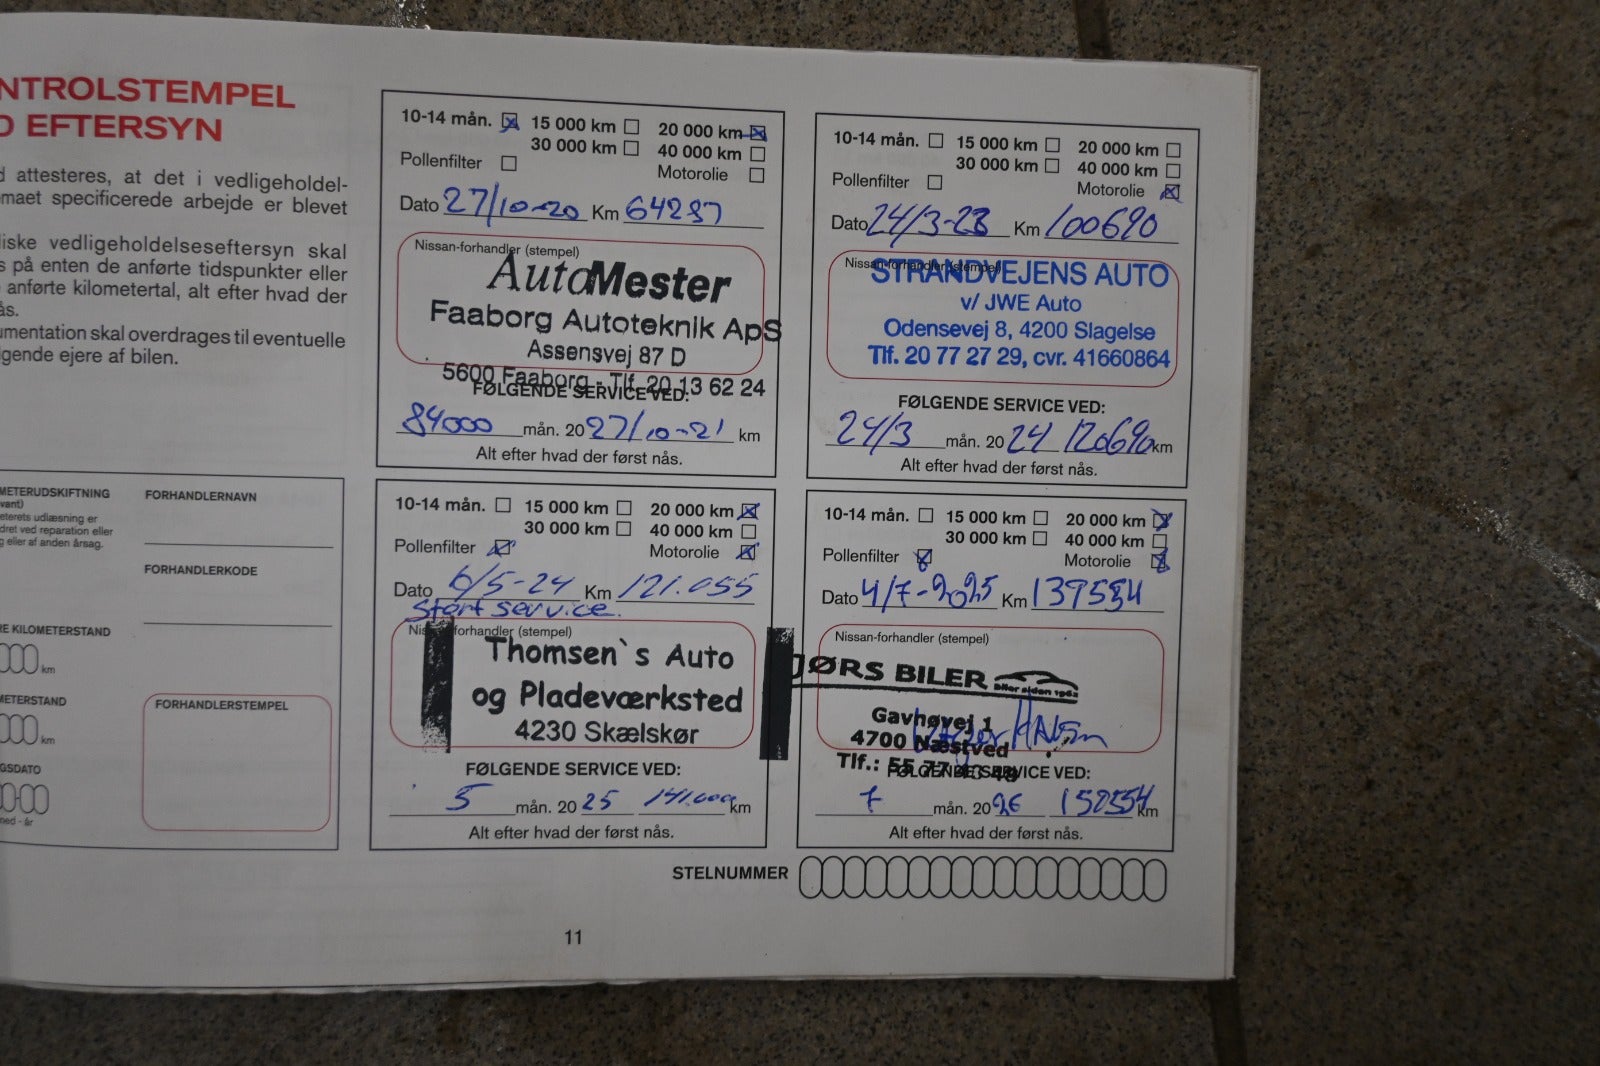 NTROLSTEMPEL
D EFTERSYN
d attesteres, at det i vedligeholdel-
maet specificerede arbejde er blevet
liske vedligeholdelseseftersyn skal
s på enten de anførte tidspunkter eller
anførte kilometertal, alt efter hvad der
ås.
umentation skal overdrages til eventuelle
lgende ejere af bilen.
METERUDSKIFTNING
vant)
eterets udlæsning er
dret ved reparation eller
g eller af anden årsag.
FORHANDLERNAVN
FORHANDLERKODE
RE KILOMETERSTAND
km
METERSTAND
km
GSDATO
ned - år
FORHANDLERSTEMPEL
10-14 mån. 15 000 km 20 000 km
30 000 km 40 000 km
Pollenfilter Motorolie
Dato 27/10-20 Km 64287
Nissan-forhandler (stempel)
AutoMester
Faaborg Autoteknik ApS
Assensvej 87 D
5600 Faaborg - Tlf. 20 13 62 24
FØLGENDE SERVICE VED:
84000 mån. 20 27/10-21 km
Alt efter hvad der først nås.
10-14 mån. 15 000 km 20 000 km
30 000 km 40 000 km
Pollenfilter Motorolie
Dato 24/3-23 Km 100690
Nissan-forhandler (stempel)
STRANDVEJENS AUTO
v/ JWE Auto
Odensevej 8, 4200 Slagelse
Tlf. 20 77 27 29, cvr. 41660864
FØLGENDE SERVICE VED:
24/3 mån. 20 24 120690 km
Alt efter hvad der først nås.
10-14 mån. 15 000 km 20 000 km
30 000 km 40 000 km
Pollenfilter Motorolie
Dato 6/5-24 Km 121.055
Stort service.
Nissan-forhandler (stempel)
Thomsen`s Auto
og Pladeværksted
4230 Skælskør
FØLGENDE SERVICE VED:
5 mån. 20 25 141.000 km
Alt efter hvad der først nås.
10-14 mån. 15 000 km 20 000 km
30 000 km 40 000 km
Pollenfilter Motorolie
Dato 4/7-2025 Km 139554
Nissan-forhandler (stempel)
JØRS BILER
biler siden 1962
Gavnøvej 1
4700 Næstved
Tlf.: 55 77
FØLGENDE SERVICE VED:
7 mån. 20 26 152554 km
Alt efter hvad der først nås.
STELNUMMER
11